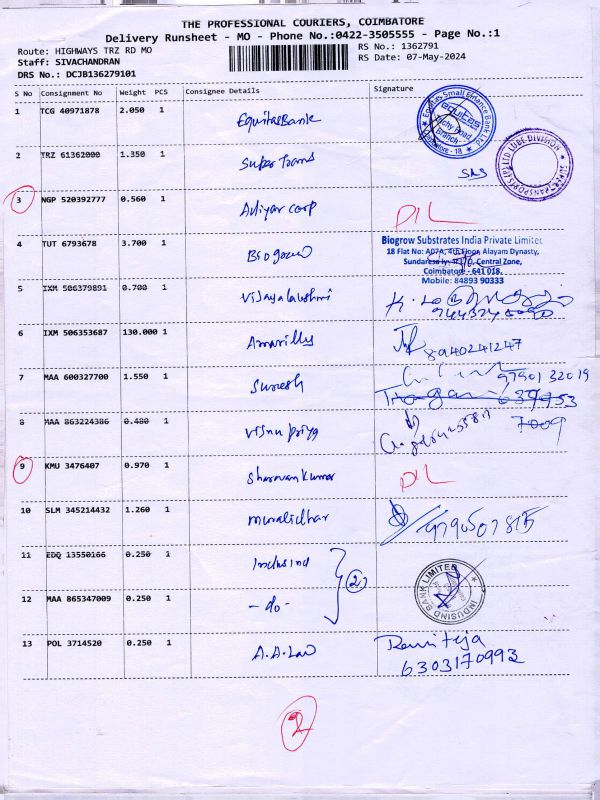 THE PROFESSIONAL COURIERS, COIMBATORE
Delivery Runsheet - MO - Phone No.:0422-3505555 - Page No.:1
Route: HIGHWAYS TRZ RD MO
RS No.: 1362791
Staff: SIVACHANDRAN
RS Date: 07-May-2024
DRS No.: DCJB136279101
S No Consignment No Weight PCS Consignee Details Signature
1 TCG 40971878 2.050 1 EquitasBank
Equitas Small Finance Bank Ltd
equitas
Trichy Road Branch
Coimbatore - 18
2 TRZ 61362000 1.350 1 Super Trans
SUPER TRANSPORTS (P) LTD LUBE DIVISION
3 NGP 520392777 0.560 1 Adiyar corp DIL
4 TUT 6793678 3.700 1 Biogrow
Biogrow Substrates India Private Limited
18 Flat No: A07A, 4th Floor, Alayam Dynasty,
Central Zone,
Coimbatore - 641 018.
Mobile: 84893 90333
5 IXM 506379891 0.700 1 Vijayalakshmi
6 IXM 506353687 130.000 1 Amarillys 8940241247
7 MAA 600327700 1.550 1 Suresh 9790132019
8 MAA 863224386 0.480 1 Visnu priya
7009
9 KMU 3476407 0.970 1 Sharavan Kumar DIL
10 SLM 345214432 1.260 1 muralidhar
11 EDQ 13550166 0.250 1 Indusind
2
INDUSIND BANK LIMITED
12 MAA 865347009 0.250 1 - do -
13 POL 3714520 0.250 1 A.A. Law Ravi teja
6303170993
2